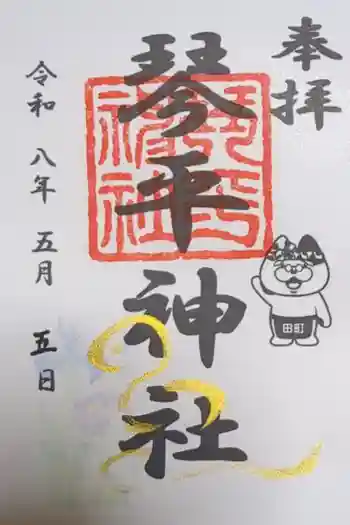 奉拝
琴平神社
令和 八年 五月 五日
琴平
神社
田町